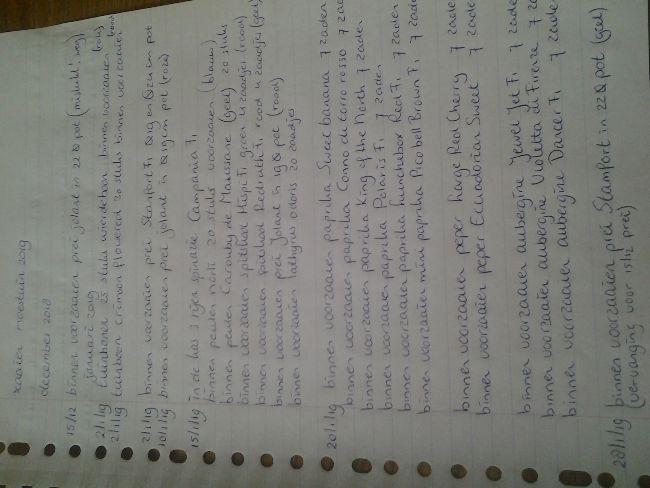 zaaien moestuin 2019
december 2018
15/12 binnen voorzaaien prei jolant in 22Q pot (mislukt, weg)
januari 2019
2/1/19 tuinbonen 25 stuks binnen voorzaaien
2/1/19 tuinboon crimson flowered 20 stuks binnen voorzaaien
2/1/19 binnen voorzaaien prei Stamfort F1 en pot
10/1/19 binnen voorzaaien prei jolant in Q19 pot (roze)
15/1/19 in de kas 3 rijen spinazie Campania F1
binnen peulen norli 20 stuks voorzaaien (blauw)
binnen peulen Carouby de Maussane (geel) 20 stuks
binnen voorzaaien spitskool Hispi F1 groen 4 zaadjes (rood)
binnen voorzaaien spitskool Redruth F1 rood 4 zaadjes (geel)
binnen voorzaaien prei Jolant in 19Q pot (rood)
binnen voorzaaien Lathyrus odoris 20 zaadjes
20/1/19 binnen voorzaaien paprika Sweet banana 7 zaden
binnen voorzaaien paprika Corno di torro rosso 7 zaden
binnen voorzaaien paprika King of the North 7 zaden
binnen voorzaaien paprika Polaris F1 7 zaden
binnen voorzaaien paprika Lunchebox Red F1 7 zaden
binnen voorzaaien mini paprika Picobell Brown F1 7 zaden
binnen voorzaaien peper Large Red Cherry 7 zaden
binnen voorzaaien peper Ecuadorian Sweet 7 zaden
binnen voorzaaien aubergine Jewel Jet F1 7 zaden
binnen voorzaaien aubergine Violetta di Firenze 7 zaden
binnen voorzaaien aubergine Dancer F1 7 zaden
28/1/19 binnen voorzaaien prei Stamfort in 22Q pot (geel)
(vervanging voor 15/12 prei)